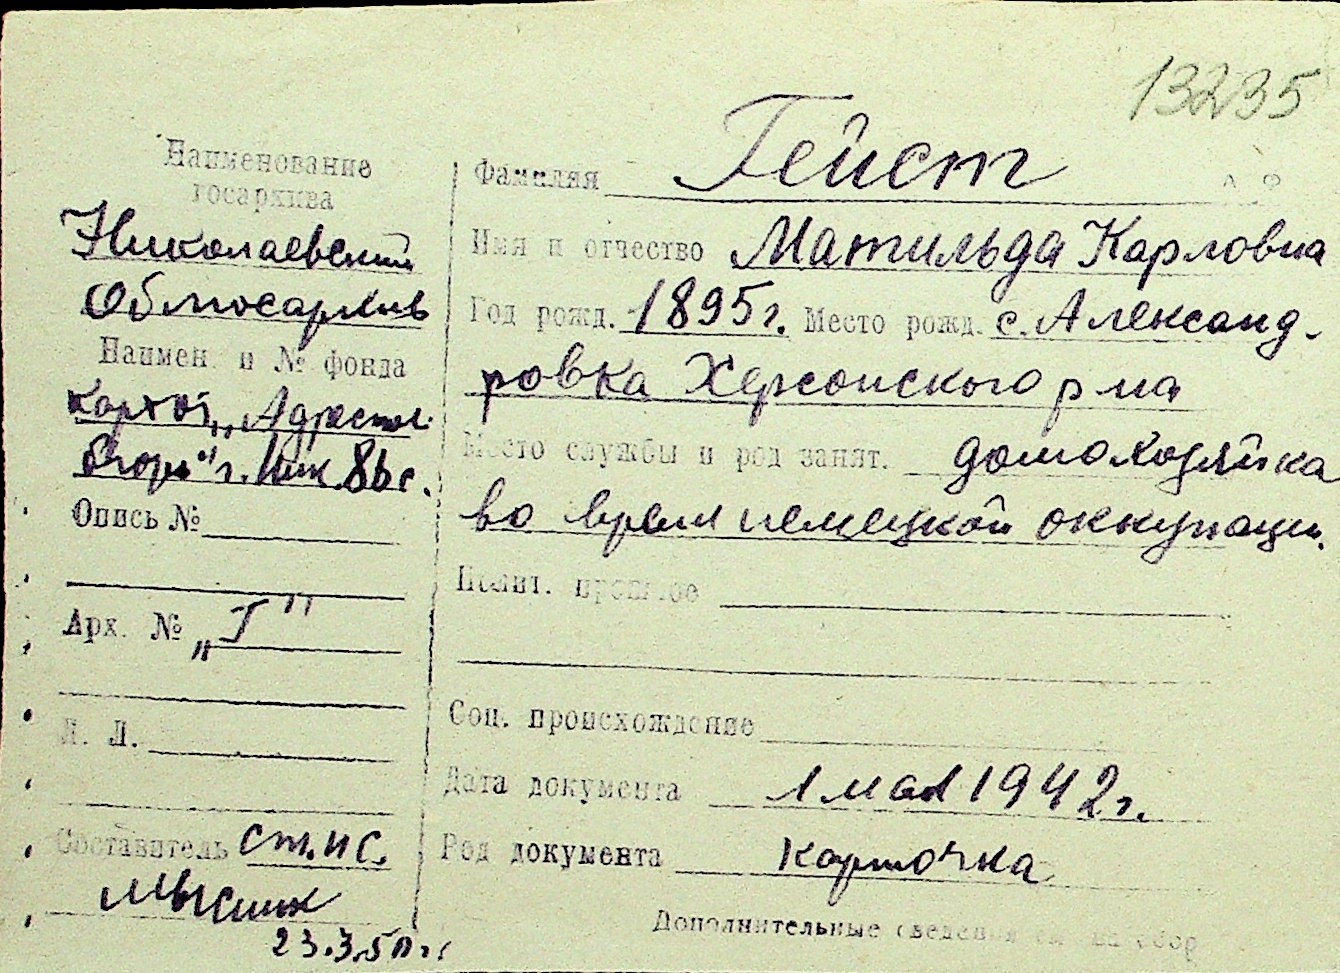 13235
Наименование
госархива
Николаевский
Облгосархив
Наимен. и № фонда
г. Ник. 86 с.
Опись №
Арх. № „I"
Л. Л.
Составитель ст. н с.
23.3.50 г.
Фамилия Гейст
Имя и отчество Матильда Карловна
Год рожд. 1895 г. Место рожд. с. Александ-
ровка Херсонского р-на
Место службы и род занят. домохозяйка
во время немецкой оккупации.
Полит. прошлое
Соц. происхождение
Дата документа 1 мая 1942 г.
Род документа карточка
Дополнительные сведения см. на обор